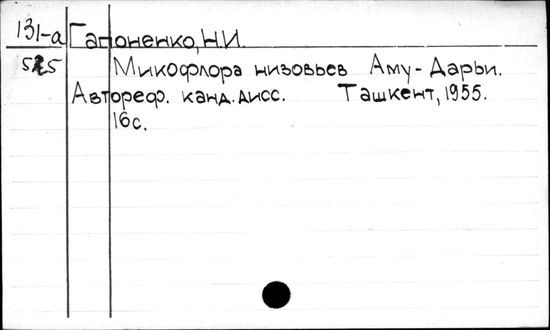 131-а Гапоненко, Н.И.
Микофлора низовьев Аму-Дарьи.
Автореф. канд. дисс. Ташкент, 1955.
16с.